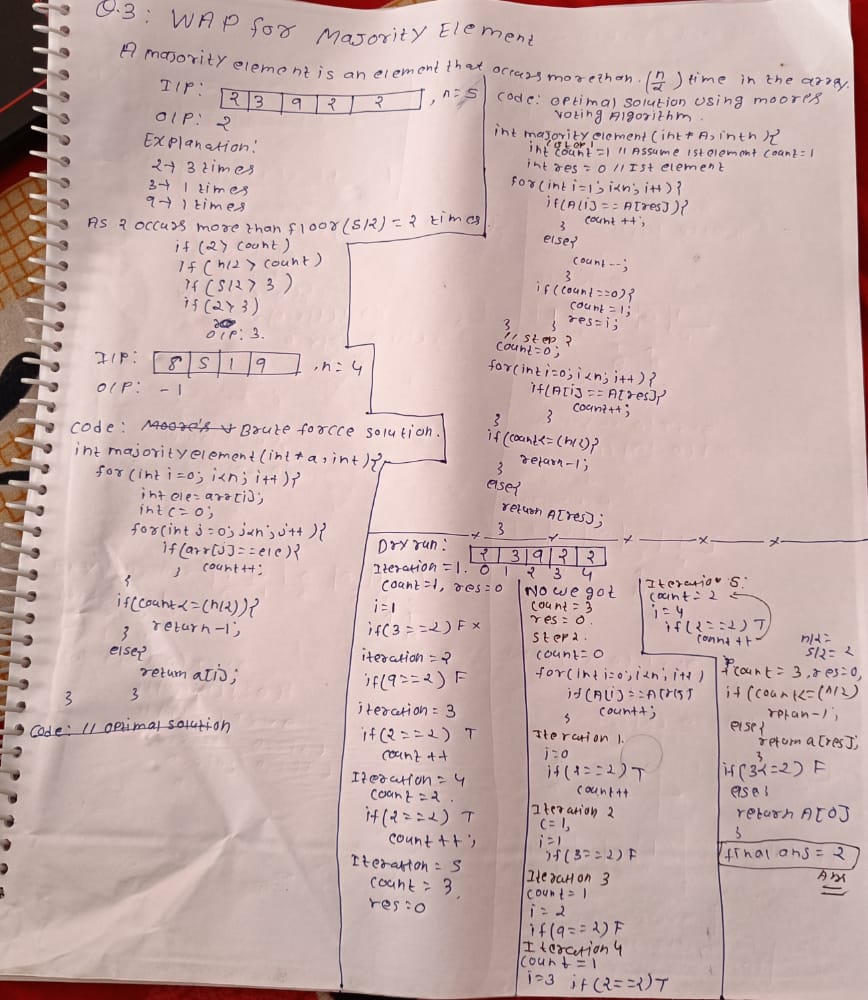 Q.3: WAP for Majority Element
A majority element is an element that occurs more than (n/2) time in the array.
I/P: 2 3 9 2 2, n=5
O/P: 2
Explanation:
2→ 3 times
3→ 1 times
9→ 1 times
As 2 occurs more than floor(5/2)=2 times
if (2> count)
if (n/2 > count)
if (5/2 > 3)
if (2>3)
O/P: 3.
I/P: 8 5 1 9, n=4
O/P: -1
Code: Moore's Brute forcce solution.
int majorityelement(int *a, int){
for(int i=0; i<n; i++){
int ele=arr[i];
int c=0;
for(int j=0; j<n; j++){
if(arr[j]==ele){
count++;
}
}
if(count<=(n/2)){
return-1;
}
else{
return a[i];
}
}
Code: // optimal solution
Code: optimal solution using moores
voting Algorithm.
int majority element(int *A, int n){
// step 1
int count=1 // Assume 1st element count=1
int res=0 // Ist element
for(int i=1; i<n; i++){
if(A[i]==A[res]){
count++;
}
else{
count--;
}
if(count==0){
count=1;
res=i;
}
}
// step 2
count=0;
for(int i=0; i<n; i++){
if(A[i]==A[res]{
count++;
}
}
if(count<=(n/2){
return-1;
}
else{
return A[res];
}
Dry run: 2 3 9 2 2
0 1 2 3 4
Iteration=1.
count=1, res=0
i=1
if(3==2) F ×
iteration=2
if(9==2) F
iteration=3
if(2==2) T
count++
Iteration=4
count=2.
if(2==2) T
count++;
Iteration=5
count=3
res=0
Now we got
count=3
res=0.
step2.
count=0
for(int i=0; i<n; i++)
if(A[i]==A[res]
count++;
}
Iteration 1.
i=0
if(2==2) T
count++
Iteration 2
c=1,
i=1
if(3==2) F
Iteration 3
count=1
i=2
if(9==2) F
Iteration 4
count=1
i=3 if(2==2) T
Iteration 5:
count=2
i=4
if(2==2) T
count++
n/2=
5/2=2
count=3, res=0,
if(count<=(n/2)
retun-1;
else{
return a[res];
}
if(3<=2) F
else{
return A[0]
}
final ans=2
Ans